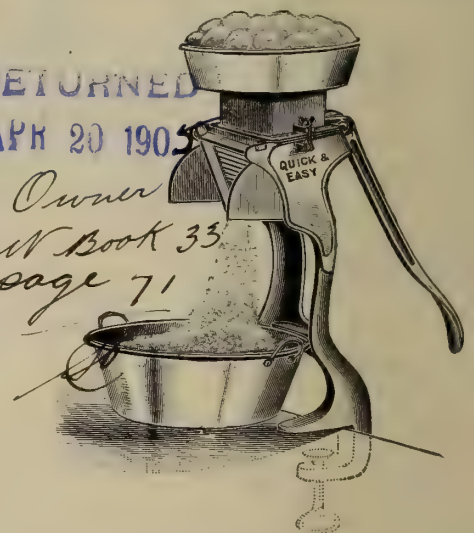 ETURNED
APR 20 1905
Owner
Book 33
page 71
QUICK &
EASY